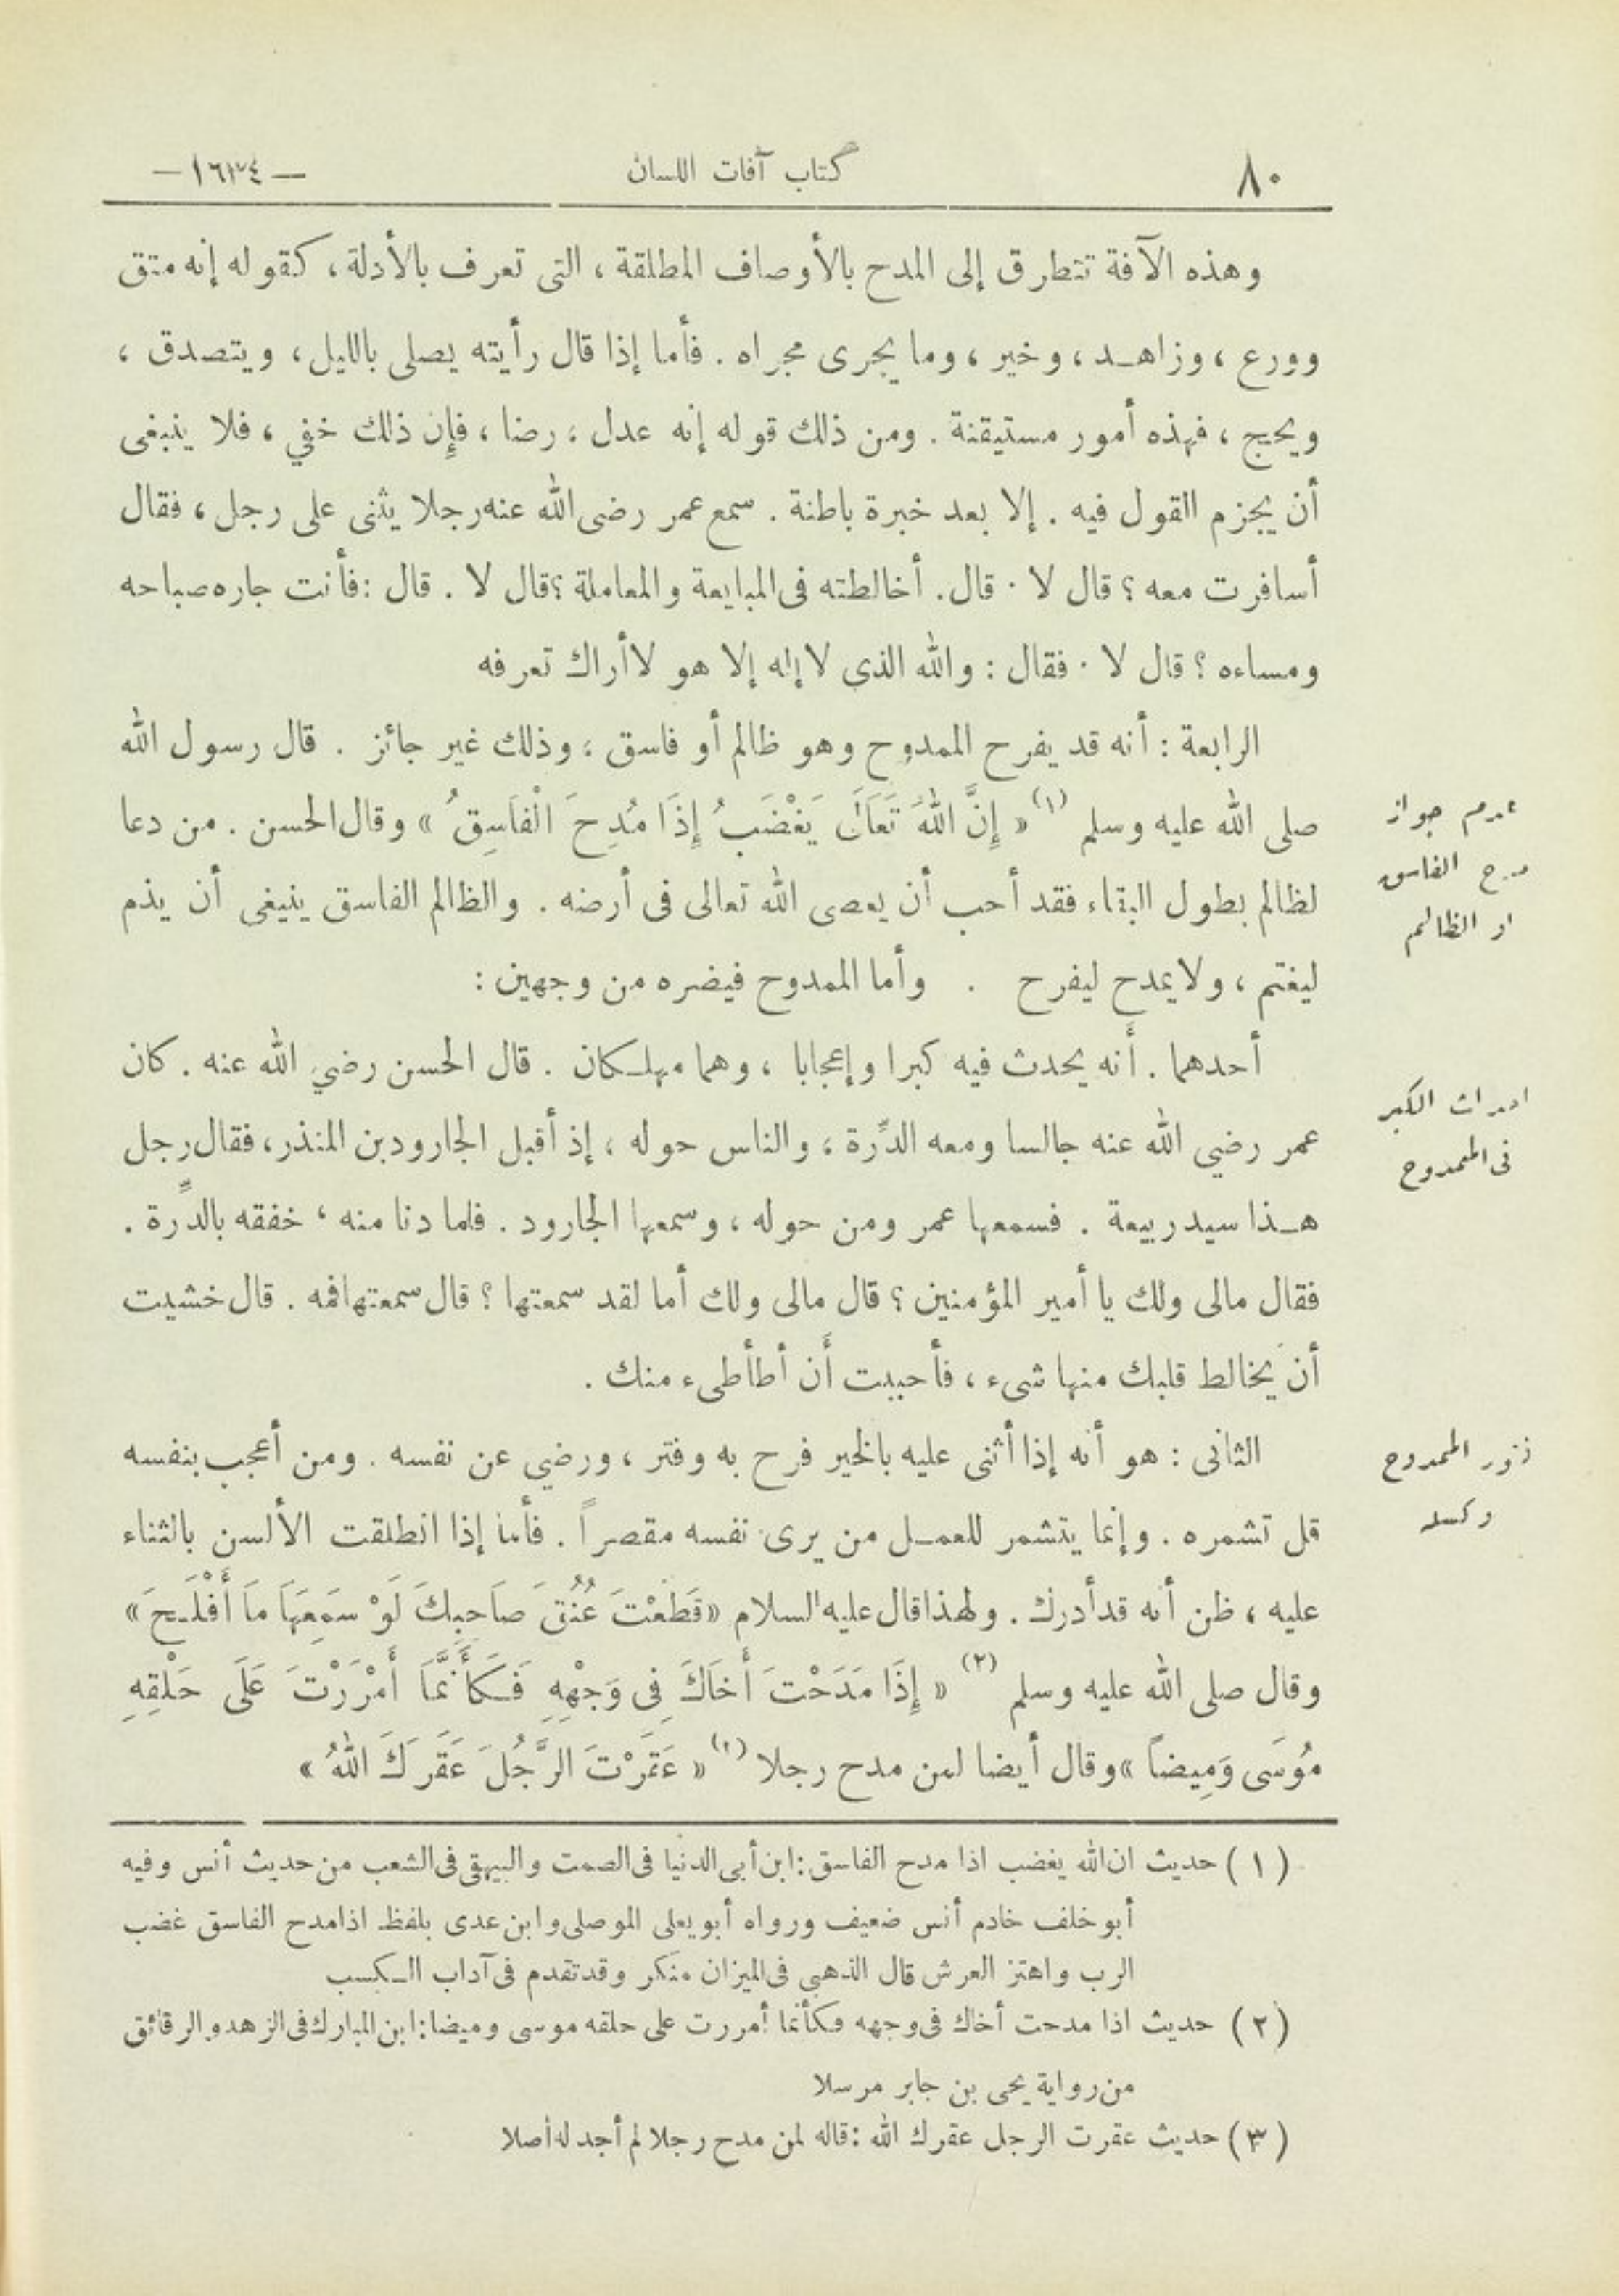 ٨٠
كتاب آفات اللسان
— ١٦٣٤ —
وهذه الآفة تتطرق إلى المدح بالأوصاف المطلقة ، التى تعرف بالأدلة ، كقوله إنه متق
وورع ، وزاهد ، وخير ، وما يجرى مجراه . فأما إذا قال رأيته يصلى بالليل ، ويتصدق ،
ويحج ، فهذه أمور مستيقنة . ومن ذلك قوله إنه عدل ، رضا ، فإن ذلك خفي ، فلا ينبغى
أن يجزم القول فيه . إلا بعد خبرة باطنة . سمع عمر رضى الله عنه رجلا يثنى على رجل ، فقال
أسافرت معه ؟ قال لا . قال . أخالطته فى المبايعة والمعاملة ؟ قال لا . قال : فأنت جاره صباحه
ومساءه ؟ قال لا . فقال : والله الذى لا إله إلا هو لا أراك تعرفه
الرابعة : أنه قد يفرح الممدوح وهو ظالم أو فاسق ، وذلك غير جائز . قال رسول الله
صلى الله عليه وسلم (١) « إِنَّ اللهَ تَعَالَى يَغْضَبُ إِذَا مُدِحَ الْفَاسِقُ » وقال الحسن . من دعا
عدم جواز
مدح الفاسق
او الظالم
لظالم بطول البقاء فقد أحب أن يعصى الله تعالى فى أرضه . والظالم الفاسق ينبغى أن يذم
ليغتم ، ولا يمدح ليفرح . وأما الممدوح فيضره من وجهين :
أحدهما . أنه يحدث فيه كبرا وإعجابا ، وهما مهلكان . قال الحسن رضي الله عنه . كان
احداث الكبر
فى الممدوح
عمر رضي الله عنه جالسا ومعه الدِّرة ، والناس حوله ، إذ أقبل الجارود بن المنذر ، فقال رجل
هذا سيد ربيعة . فسمعها عمر ومن حوله ، وسمعها الجارود . فلما دنا منه ، خفقه بالدِّرة .
فقال مالى ولك يا أمير المؤمنين ؟ قال مالى ولك أما لقد سمعتها ؟ قال سمعتها فمه . قال خشيت
أن يخالط قلبك منها شىء ، فأحببت أن أطأطىء منك .
الثانى : هو أنه إذا أثنى عليه بالخير فرح به وفتر ، ورضي عن نفسه . ومن أعجب بنفسه
الممدوح
وكسله
قل تشمره . وإنما يتشمر للعمل من يرى نفسه مقصراً . فأما إذا انطلقت الألسن بالثناء
عليه ، ظن أنه قد أدرك . ولهذا قال عليه السلام « قَطَعْتَ عُنُقَ صَاحِبِكَ لَوْ سَمِعَهَا مَا أَفْلَحَ »
وقال صلى الله عليه وسلم (٢) « إِذَا مَدَحْتَ أَخَاكَ فِى وَجْهِهِ فَكَأَنَّمَا أَمْرَرْتَ عَلَى حَلْقِهِ
مُوسَى وَمِيضاً » وقال أيضا لمن مدح رجلا (٢) « عَقَرْتَ الرَّجُلَ عَقَرَكَ اللهُ »
( ١ ) حديث ان الله يغضب اذا مدح الفاسق : ابن أبى الدنيا فى الصمت والبيهقى فى الشعب من حديث أنس وفيه
أبو خلف خادم أنس ضعيف ورواه أبو يعلى الموصلى وابن عدى بلفظ اذا مدح الفاسق غضب
الرب واهتز العرش قال الذهبى فى الميزان منكر وقد تقدم فى آداب الكسب
( ٢ ) حديث اذا مدحت أخاك فى وجهه فكأنما أمررت على حلقه موسى وميضا : ابن المبارك فى الزهد والرقائق
من رواية يحى بن جابر مرسلا
( ٣ ) حديث عقرت الرجل عقرك الله : قاله لمن مدح رجلا لم أجد له أصلا